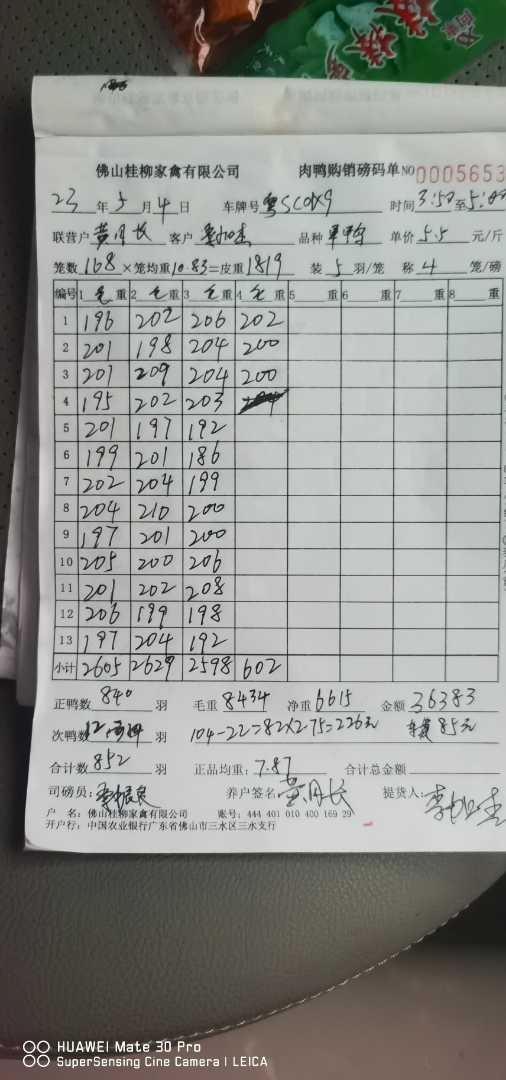 佛山桂柳家禽有限公司 肉鸭购销磅码单 NO 0005653
23年5月4日 车牌号 时间3:50至5:00
联营户黄月长 客户 品种 单价5.5元/斤
笼数168×笼均重10.83=皮重1819 装5羽/笼 称4笼/磅
编号 1毛重 2毛重 3毛重 4毛重 5 重 6 重 7 重 8 重
1 196 202 206 202
2 201 198 204 200
3 201 209 204 200
4 195 202 203
5 201 197 192
6 199 201 186
7 202 204 199
8 204 210 200
9 197 201 200
10 205 200 206
11 201 202 208
12 206 199 198
13 197 204 192
小计 2605 2629 2598 602
正鸭数840羽 毛重8434 净重6615 金额36383
次鸭数12 羽 104-22=82×2.75=226元 85元
合计数852羽 正品均重:7.87 合计总金额
司磅员: 养户签名:黄月长 提货人:
户 名:佛山桂柳家禽有限公司 账号:444 401 010 400 169 29
开户行:中国农业银行广东省佛山市三水区三水支行
HUAWEI Mate 30 Pro
SuperSensing Cine Camera | LEICA